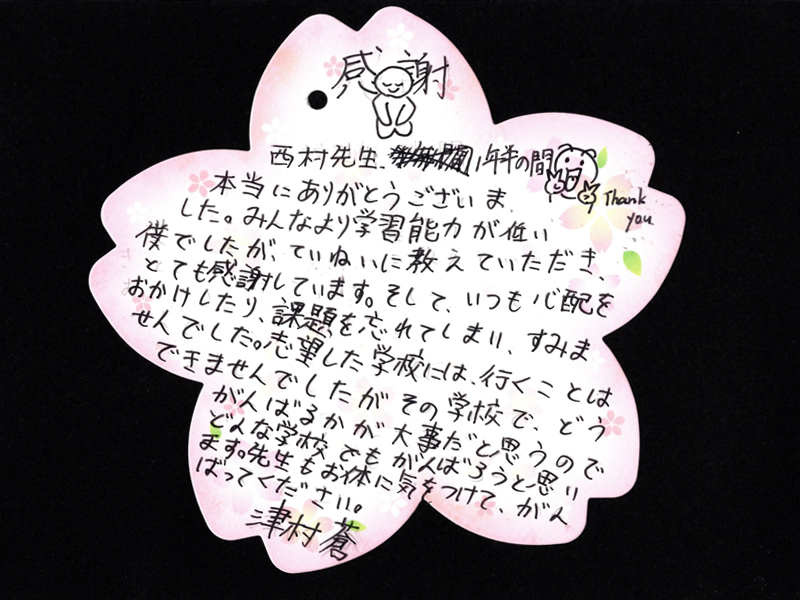 感謝
西村先生、1年半の間
Thank
you
本当にありがとうございま
した。みんなより学習能力が低い
僕でしたが、ていねいに教えていただき、
とても感謝しています。そして、いつも心配を
おかけしたり、課題を忘れてしまい、すみま
せんでした。志望した学校には、行くことは
できませんでしたがその学校で、どう
がんばるかが大事だと思うので
どんな学校でもがんばろうと思い
ます。先生もお体に気をつけて、がん
ばってください。
津村蒼